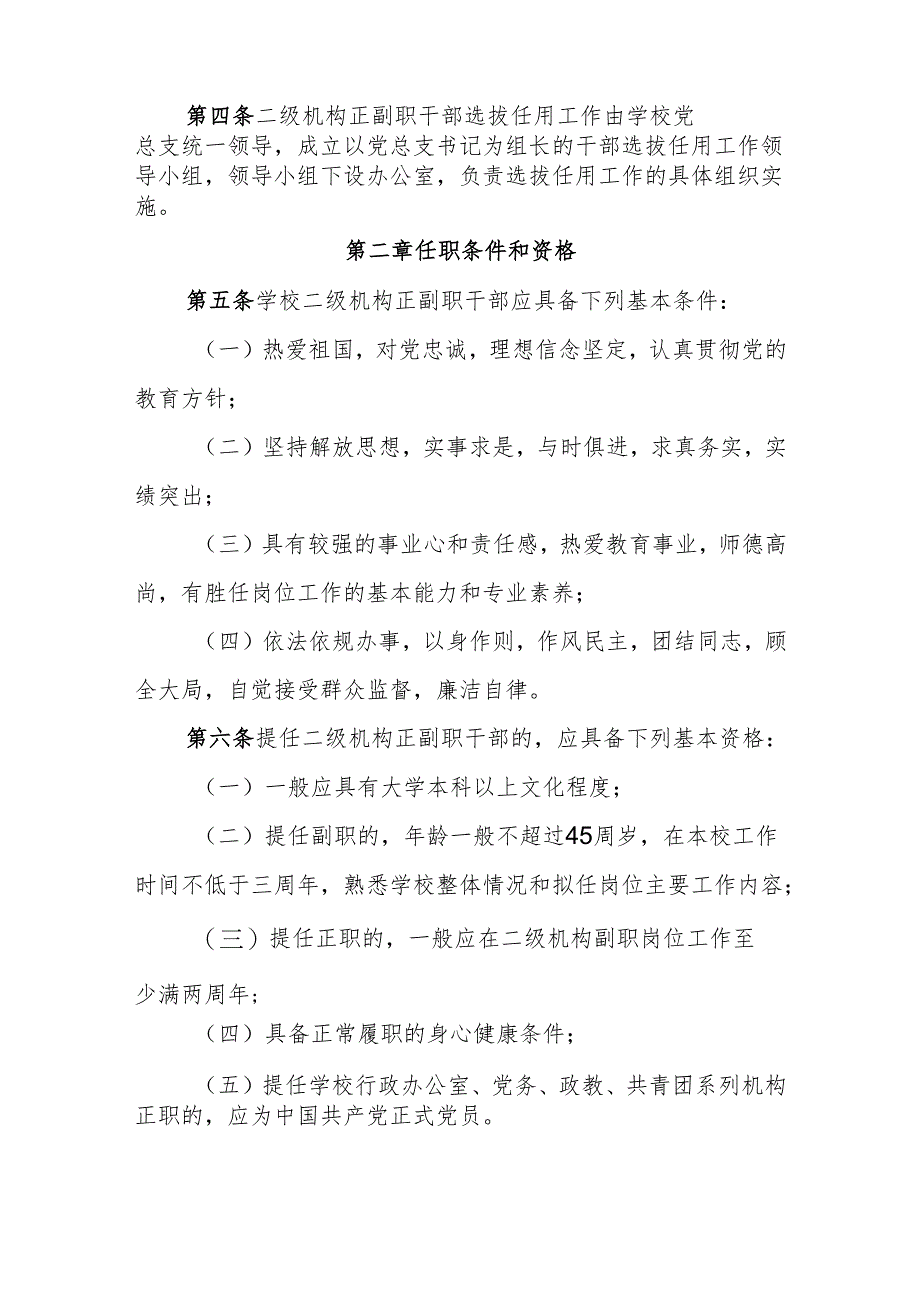 第四条二级机构正副职干部选拔任用工作由学校党
总支统一领导，成立以党总支书记为组长的干部选拔任用工作领
导小组，领导小组下设办公室，负责选拔任用工作的具体组织实
施。
第二章任职条件和资格
第五条学校二级机构正副职干部应具备下列基本条件：
（一）热爱祖国，对党忠诚，理想信念坚定，认真贯彻党的
教育方针；
（二）坚持解放思想，实事求是，与时俱进，求真务实，实
绩突出；
（三）具有较强的事业心和责任感，热爱教育事业，师德高
尚，有胜任岗位工作的基本能力和专业素养；
（四）依法依规办事，以身作则，作风民主，团结同志，顾
全大局，自觉接受群众监督，廉洁自律。
第六条提任二级机构正副职干部的，应具备下列基本资格：
（一）一般应具有大学本科以上文化程度；
（二）提任副职的，年龄一般不超过45周岁，在本校工作
时间不低于三周年，熟悉学校整体情况和拟任岗位主要工作内容；
（三）提任正职的，一般应在二级机构副职岗位工作至
少满两周年；
（四）具备正常履职的身心健康条件；
（五）提任学校行政办公室、党务、政教、共青团系列机构
正职的，应为中国共产党正式党员。